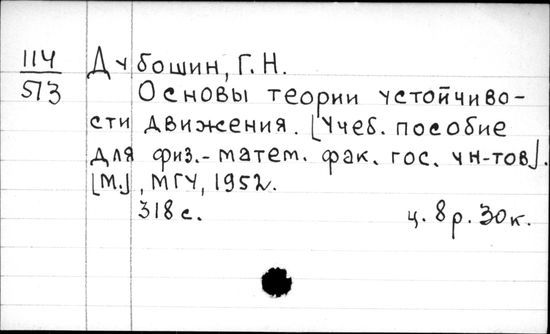 114
513
Дубошин, Г. Н.
Основы теории устойчиво-
сти движения. [Учеб. пособие
для физ.-матем. фак. гос. ун-тов].
[М.], МГУ, 1952.
318 с. ц. 8 р. 30 к.